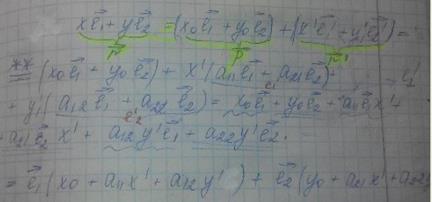 xe⃗₁ + ye⃗₂ = (x₀e⃗₁ + y₀e⃗₂) + (x'e⃗₁' + y'e⃗₂') =
r⃗ p⃗ r⃗'
** = (x₀e⃗₁ + y₀e⃗₂) + x'(a₁₁e⃗₁ + a₂₁e⃗₂) +
+ y'(a₁₂e⃗₁ + a₂₂e⃗₂) = x₀e⃗₁ + y₀e⃗₂ + a₁₁e⃗₁x' +
e⃗₂'
+ a₂₁e⃗₂ x' + a₁₂y'e⃗₁ + a₂₂y'e⃗₂.
= e⃗₁(x₀ + a₁₁x' + a₁₂y') + e⃗₂(y₀ + a₂₁x' + a₂₂